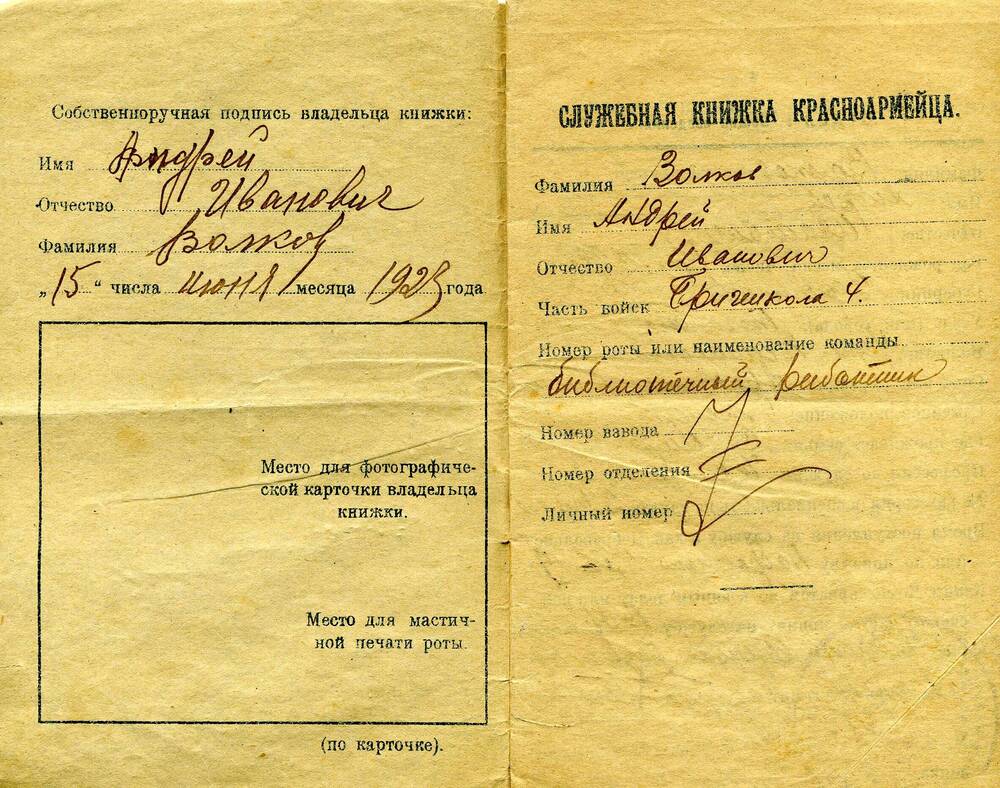 Собственноручная подпись владельца книжки:
Имя Андрей
Отчество Иванович
Фамилия Волков
„15“ числа июня месяца 1923 года
Место для фотографиче-
ской карточки владельца
книжки.
Место для мастич-
ной печати роты.
(по карточке).
СЛУЖЕБНАЯ КНИЖКА КРАСНОАРМЕЙЦА.
Фамилия Волков
Имя Андрей
Отчество Иванович
Часть войск 4.
Номер роты или наименование команды
библиотечный работник
Номер взвода
Номер отделения
Личный номер